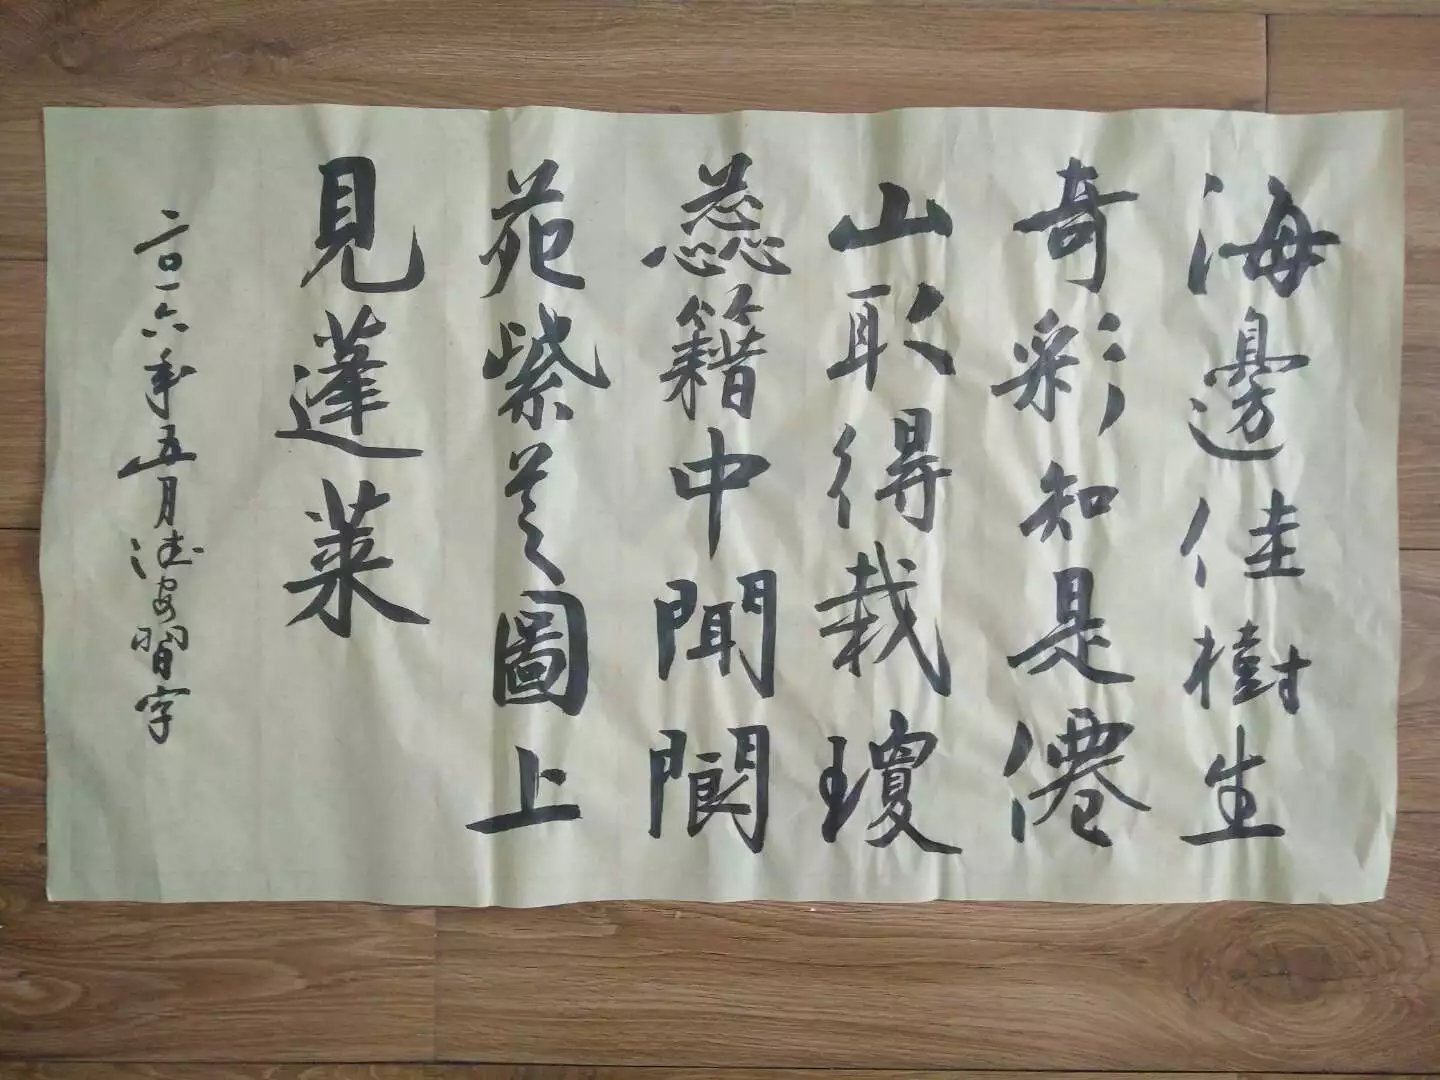 海邊佳樹生
奇彩知是僊
山取得栽瓊
蕊籍中聞閬
苑紫芝圖上
見蓬萊
二〇一六年五月安習字